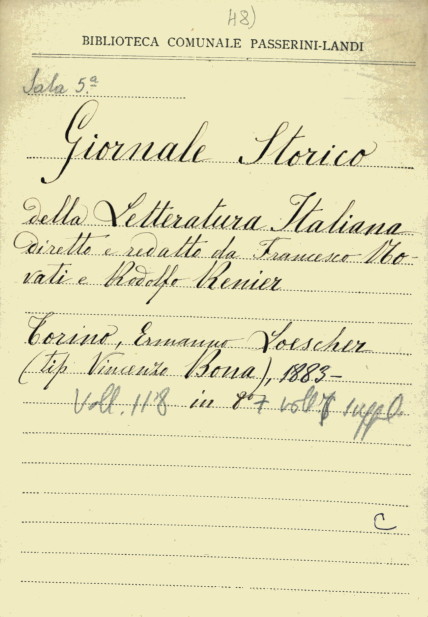 48)
BIBLIOTECA COMUNALE PASSERINI-LANDI
Sala 5.a
Giornale Storico
della Letteratura Italiana
diretto e redatto da Francesco No-
vati e Rodolfo Renier
Torino, Ermanno Loescher
(tip Vincenzo Bona), 1883-
Voll. 118 in 8° 7 voll. suppl.
C